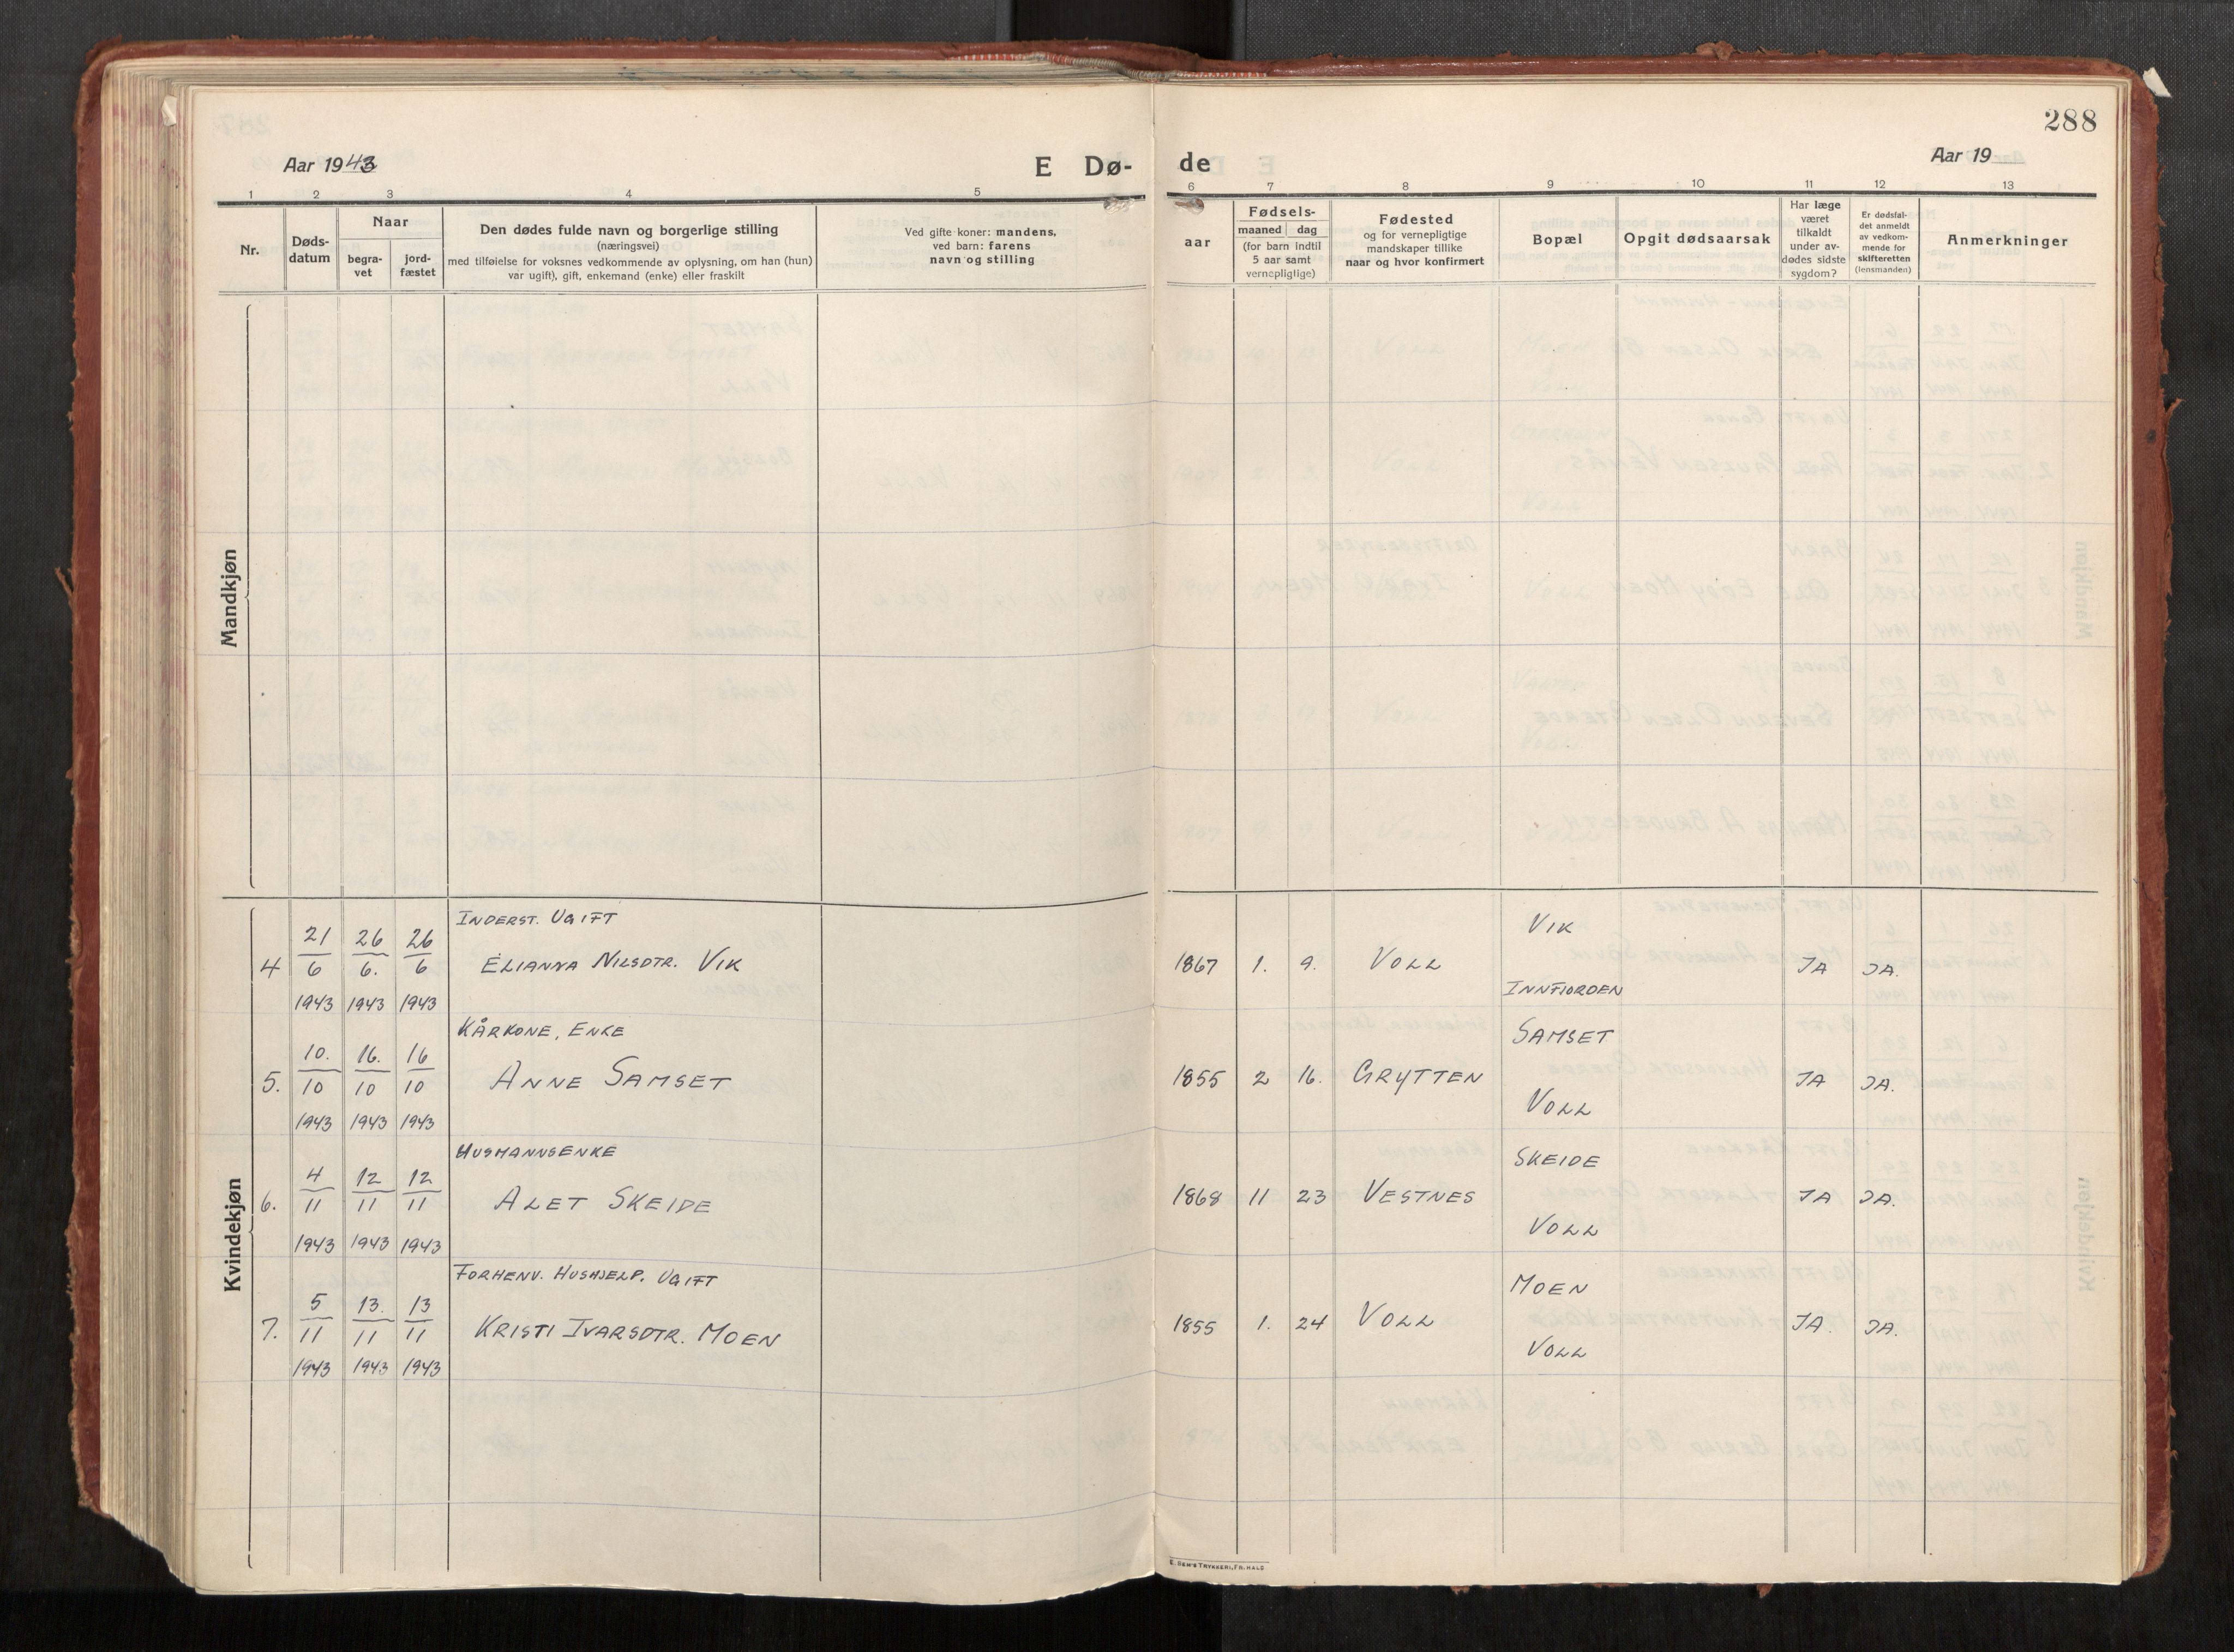 288
Aar 1943
E Dø-
de
Aar 19
1 2 3 4 5 6 7 8 9 10 11 12 13
Nr.
Døds-
datum
Naar
begra-
vet
jord-
fæstet
Den dødes fulde navn og borgerlige stilling
(næringsvei)
med tilføielse for voksnes vedkommende av oplysning, om han (hun)
var ugift), gift, enkemand (enke) eller fraskilt
Ved gifte koner: mandens,
ved barn: farens
navn og stilling
aar
Fødsels-
maaned dag
(for barn indtil
5 aar samt
vernepligtige)
Fødested
og for vernepligtige
mandskaper tillike
naar og hvor konfirmert
Bopæl
Opgit dødsaarsak
Har læge
været
tilkaldt
under av-
dødes sidste
sygdom?
Er dødsfal-
det anmeldt
av vedkom-
mende for
skifteretten
(lensmanden)
Anmerkninger
Mandkjøn
Kvindekjøn
INDERST. UGIFT VIK
21 26 26
4 6 6. 6 ELIANNA NILSDTR. VIK 1867 1. 9. VOLL JA JA.
1943 1943 1943 INNFIORDEN
KÅRKONE, ENKE SAMSET
10. 16. 16
5. 10 10 10 ANNE SAMSET 1855 2 16. GRYTTEN JA JA.
1943 1943 1943 VOLL
HUSMANNSENKE SKEIDE
4 12 12
6. 11 11 11 ALET SKEIDE 1868 11 23 VESTNES JA JA.
1943 1943 1943 VOLL
FORHENV. HUSHJELP. UGIFT MOEN
5 13. 13
7. 11 11 11 KRISTI IVARSDTR. MOEN 1855 1. 24 VOLL JA. JA.
1943 1943 1943 VOLL
E. SEM'S TRYKKERI, FR. HALD